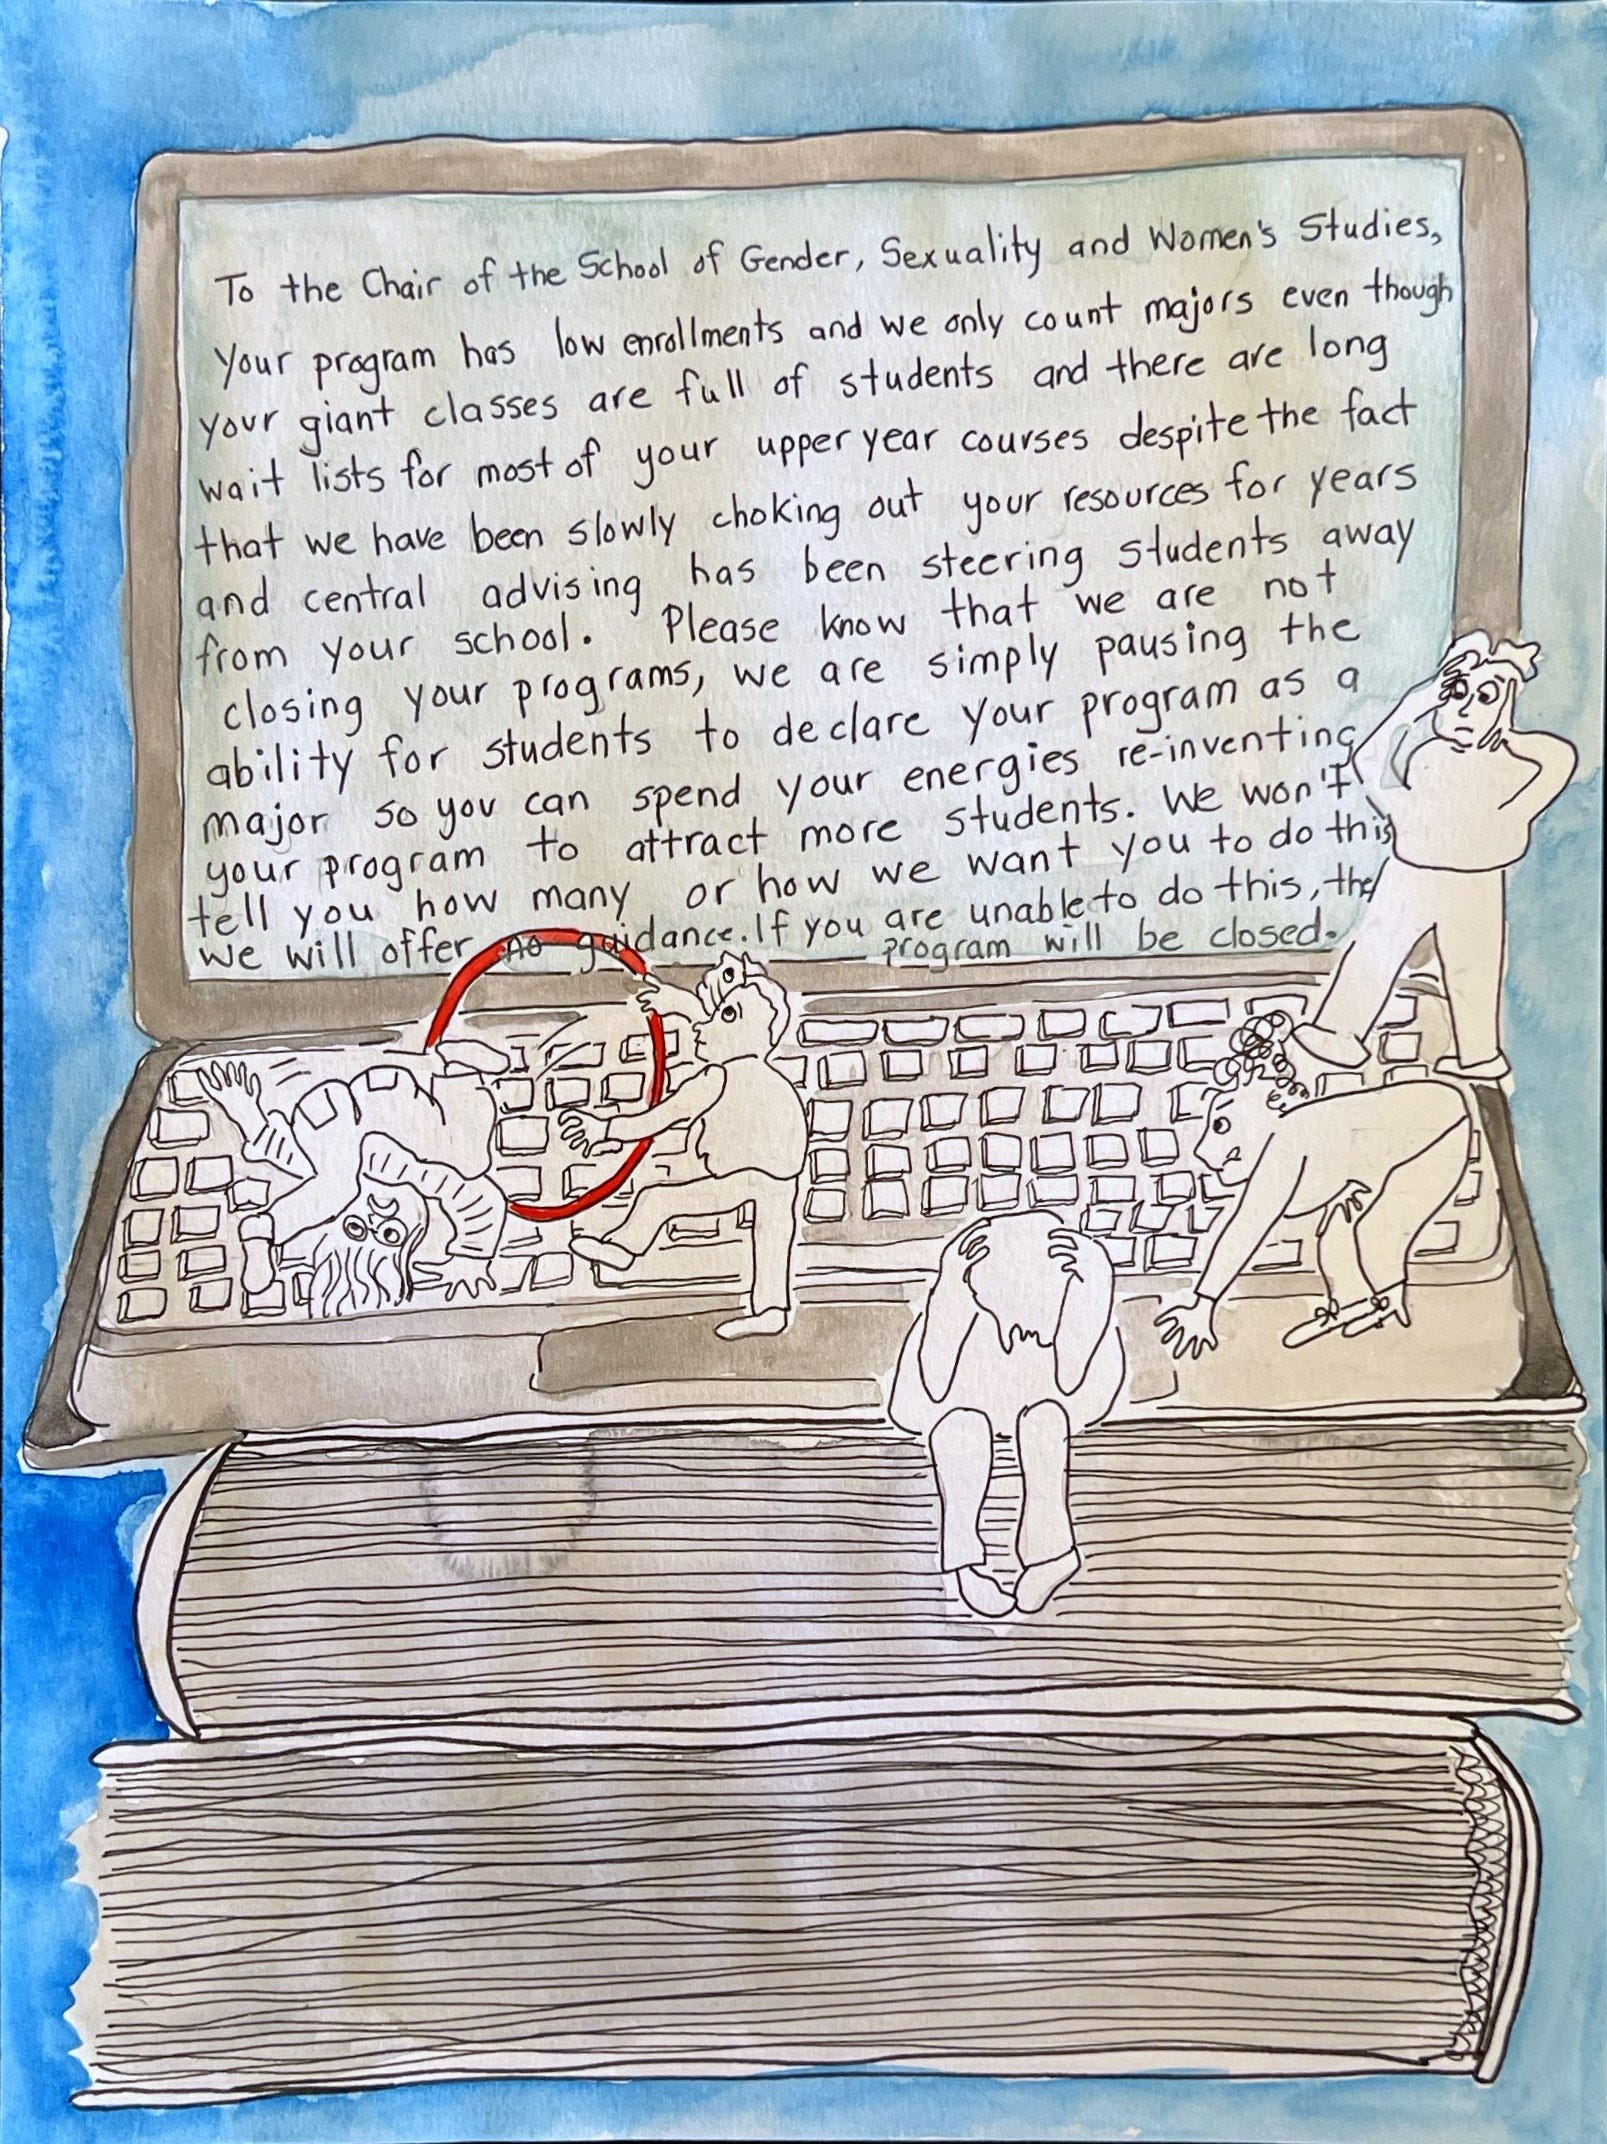 To the Chair of the School of Gender, Sexuality and Women's Studies,
Your program has low enrollments and we only count majors even though
your giant classes are full of students and there are long
wait lists for most of your upper year courses despite the fact
that we have been slowly choking out your resources for years
and central advising has been steering students away
from your school. Please know that we are not
closing your programs, we are simply pausing the
ability for students to declare your program as a
major so you can spend your energies re-inventing
your program to attract more students. We won't
tell you how many or how we want you to do this
we will offer no guidance. If you are unable to do this, the
program will be closed.